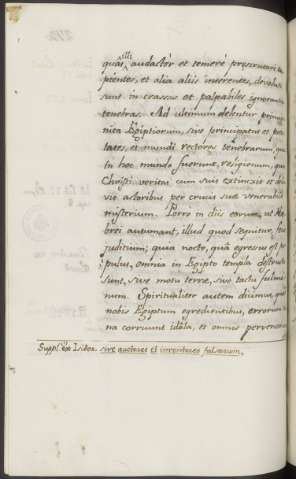 quàm illi audacter et temerè perscrutari cu
pientes, et alia aliis inserentes, devoluti
sunt in crassas et palpabiles ignorantiæ
tenebras. Ad ultimum delentur primoge
nita Ægiptiorum, sive principatus et potes
tates, et mundi rectores tenebrarum, qui
in hoc mundo fuerunt, religionum, quas
Christi veritas cum suis extinxit et dele
vit actoribus per crucis suæ venerabile
misterium. Porro in diis eorum, ut He
brei autumant, illud quod sequitur, fecit
juditium; quia nocte, quâ egressus est po
pulus, omnia in Egipto templa destructa
sunt, sive motu terræ, sive tactu fulmi
num. Spiritualiter autem dicimus, quòd
nobis Egiptum egredientibus, errorum
na corruunt idola, et omnis perversarum
Suppl. ex Isidor. sive auctores et inventores falsorum.